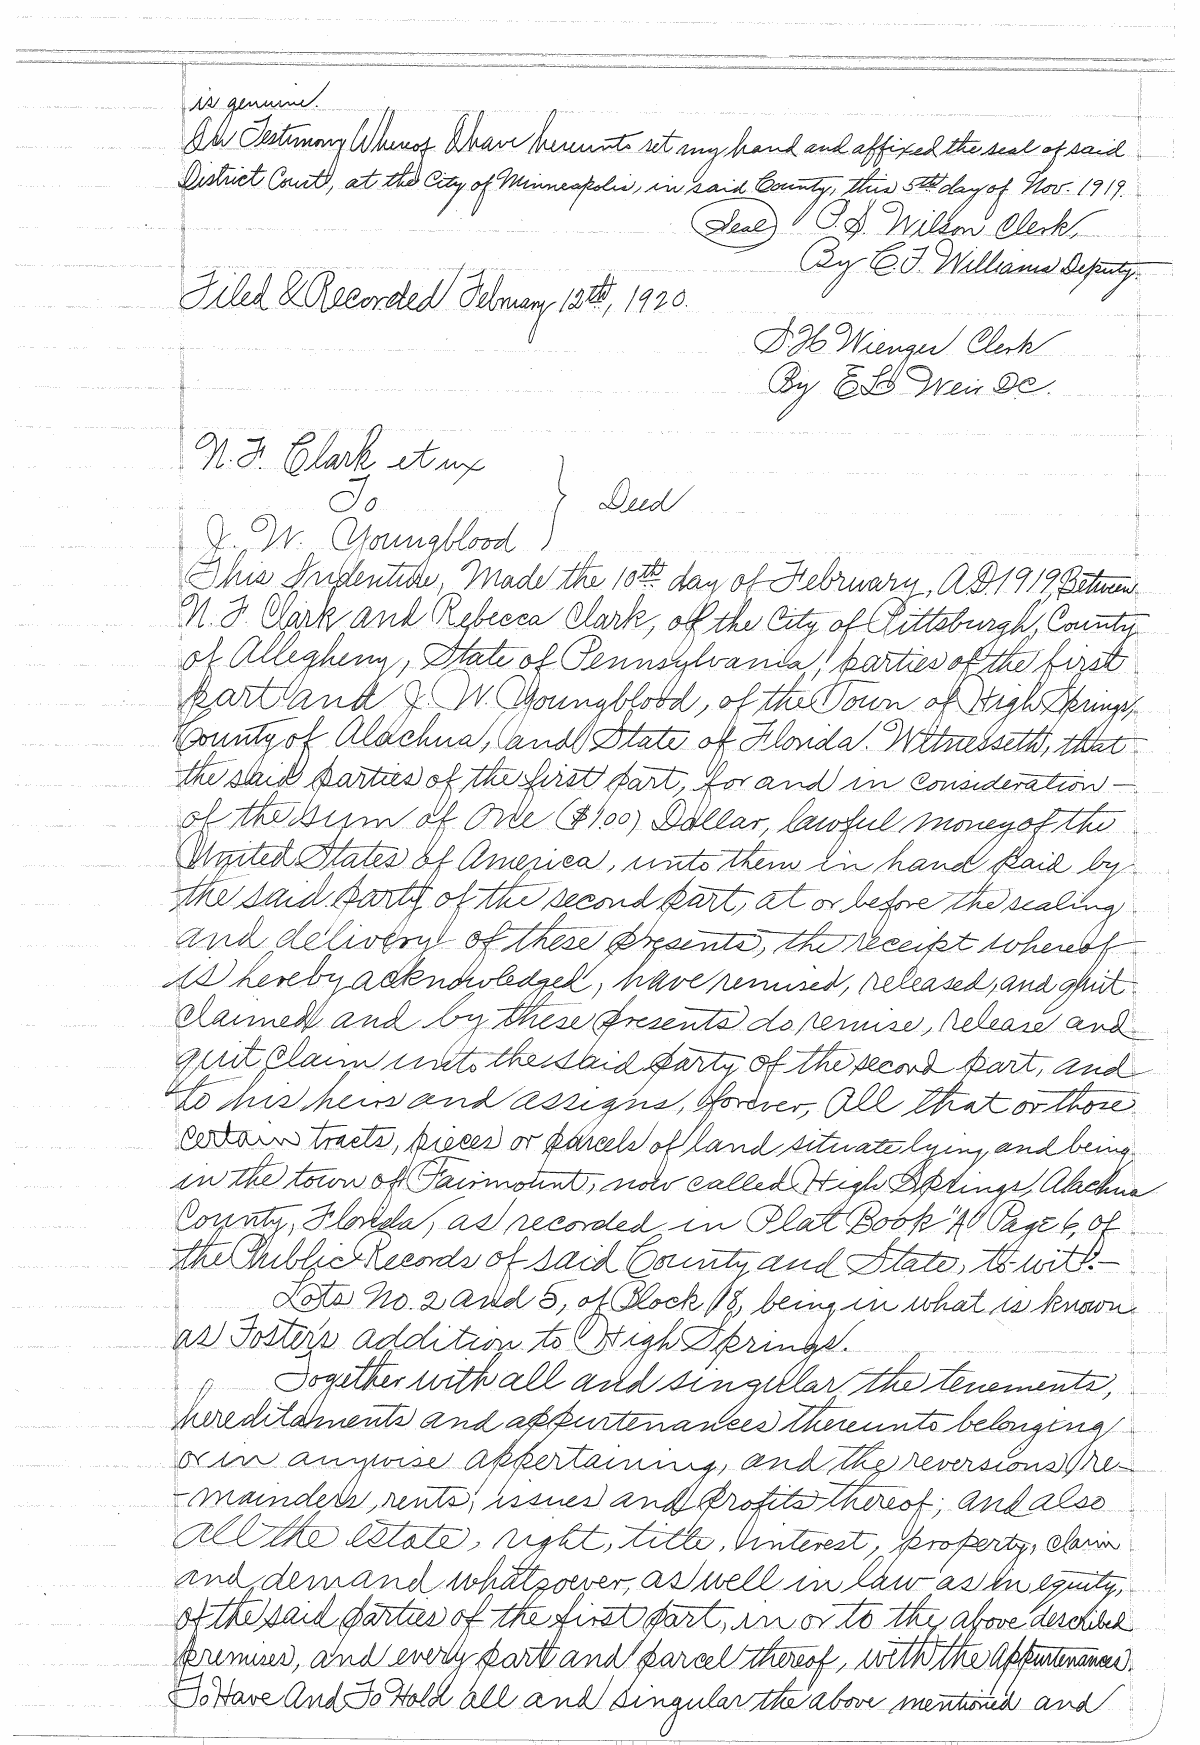 is genuine.
In Testimony Whereof I have hereunto set my hand and affixed the seal of said
District Court, at the City of Minneapolis, in said County, this 5th day of Nov. 1919.
(Seal) P. S. Wilson Clerk,
By C. F. Williams Deputy.
Filed & Recorded February 12th, 1920.
S. H. Wienges Clerk
By E L Weir DC.
N. F. Clark et ux
To } Deed
J. W. Youngblood
This Indenture, Made the 10th day of February, A.D. 1919, Between
N. F. Clark and Rebecca Clark, of the City of Pittsburgh, County
of Allegheny, State of Pennsylvania, parties of the first
part and J. W. Youngblood, of the Town of High Springs,
County of Alachua, and State of Florida. Witnesseth, that
the said parties of the first part, for and in consideration –
of the sum of One ($1.00) Dollar, lawful money of the
United States of America, unto them in hand paid by
the said party of the second part, at or before the sealing
and delivery of these presents, the receipt whereof
is hereby acknowledged, have remised, released, and quit
claimed and by these presents do remise, release and
quit claim unto the said party of the second part, and
to his heirs and assigns, forever, All that or those
certain tracts, pieces or parcels of land situate lying and being
in the town of Fairmount, now called High Springs, Alachua
County, Florida, as recorded in Plat Book "A" Page 6, of
the Public Records of said County and State, to-wit:–
Lots No. 2 and 5, of Block 18, being in what is known
as Foster's addition to High Springs.
Together with all and singular the tenements,
hereditaments and appurtenances thereunto belonging
or in anywise appertaining, and the reversions, re-
-mainders, rents, issues and profits thereof; and also
all the estate, right, title, interest, property, claim
and demand whatsoever, as well in law as in equity,
of the said parties of the first part, in or to the above described
premises, and every part and parcel thereof, with the appurtenances.
To Have And To Hold all and singular the above mentioned and